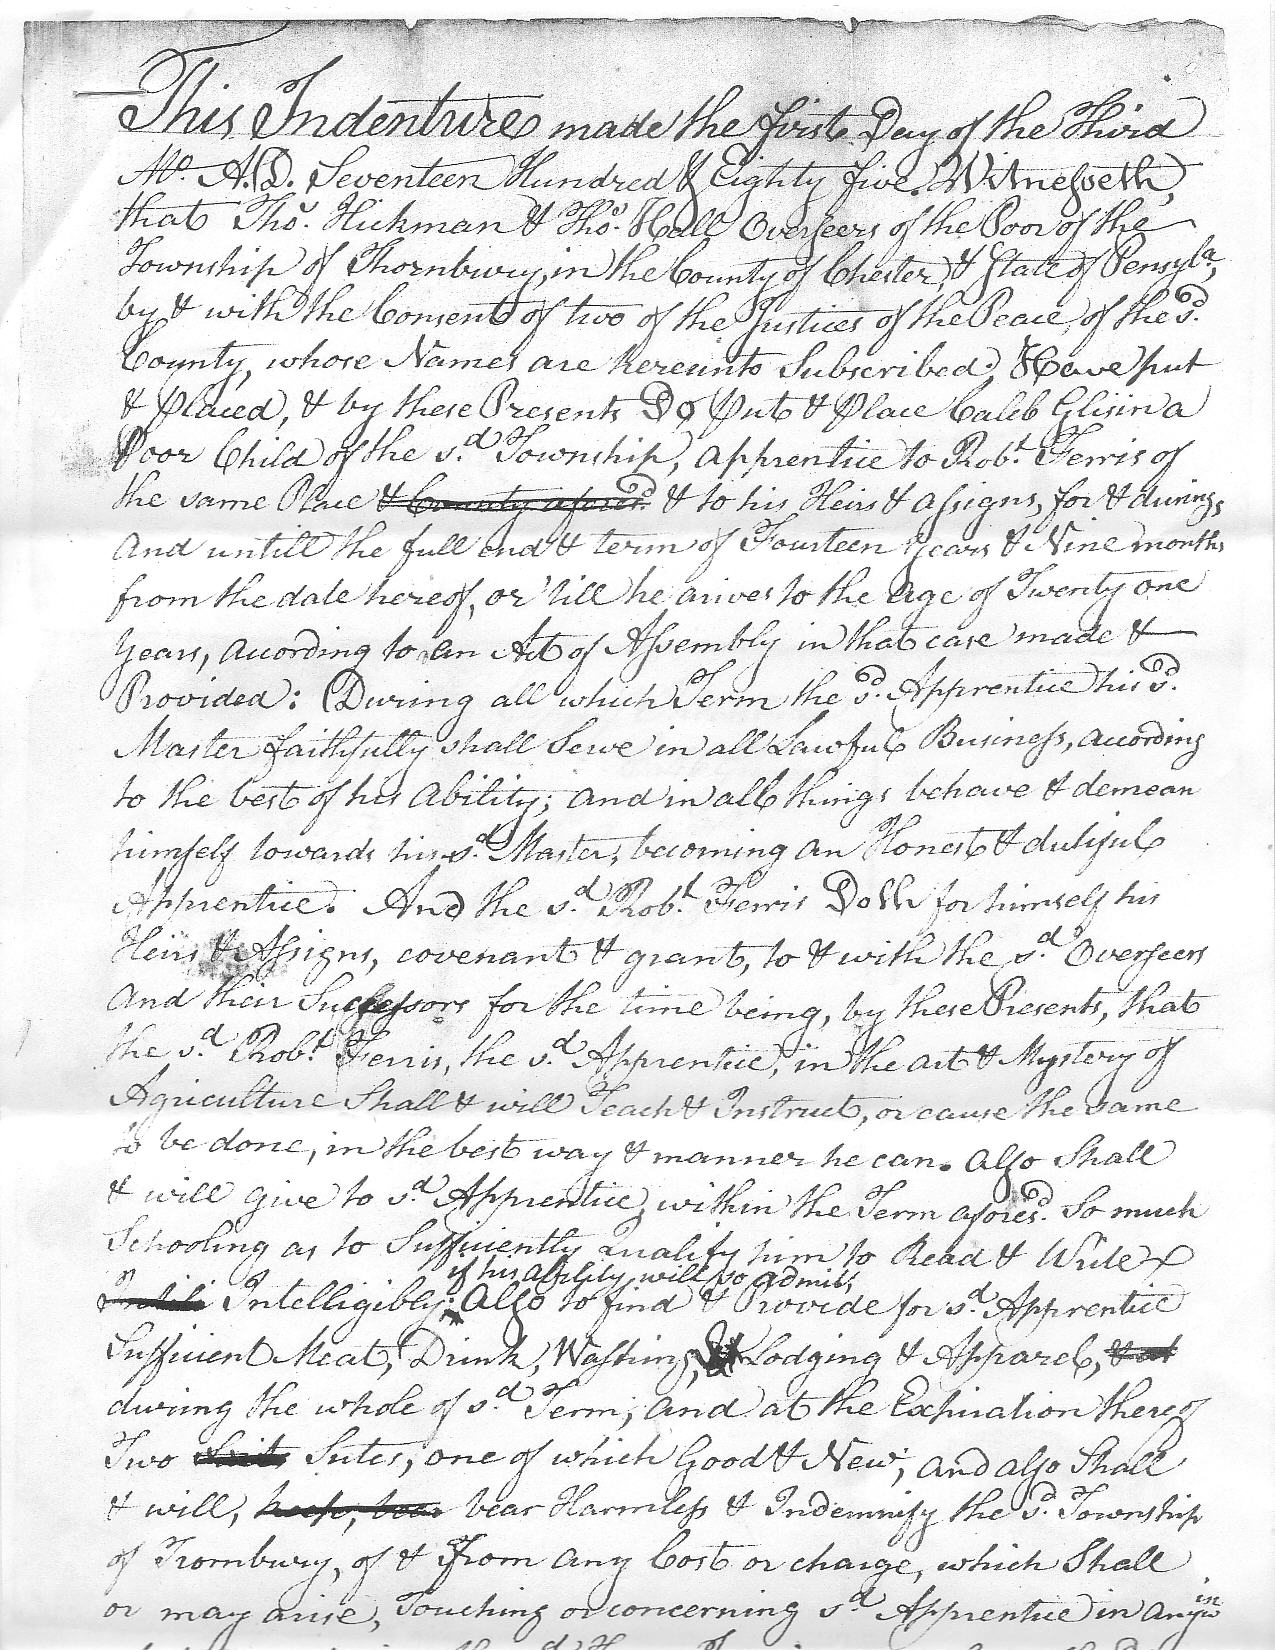 This Indenture made the first Day of the Third
Mo. A.D. Seventeen Hundred & Eighty five. Witnesseth,
that Thos. Hickman & Thos. Hall Overseers of the Poor of the
Township of Thornbury, in the County of Chester, & State of Pensyla.,
by & with the Consent of two of the Justices of the Peace, of the sd.
County, whose Names are hereunto Subscribed; Have put
& placed, & by these Presents Do put & place Caleb Glisin a
Poor Child of the sd. Township, apprentice to Robt. Ferris of
the same Place & County aforesd. & to his Heirs & assigns, for & during,
and untill the full end & term of Fourteen years & Nine months
from the date hereof, or 'till he arives to the age of Twenty one
years, acording to an Act of Assembly in that case made &
Provided: During all which Term the sd. Apprentice his sd.
Master faithfully shall Serve in all Lawful Business, acording
to the best of his ability; and in all things behave & demean
himself towards his sd. Master, becoming an Honest & dutiful
Apprentice. And the sd. Robt. Ferris Doth for himself his
Heirs & Assigns, covenant & grant, to & with the sd. Overseers
and their Successors for the time being, by these Presents, that
the sd. Robt. Ferris, the sd. Apprentice, in the art & Mystery of
Agriculture Shall & will Teach & Instruct, or cause the same
to be done, in the best way & manner he can. also Shall
& will give to sd. Apprentice, within the Term aforesd. So much
Schooling as to Sufficiently qualify him to Read & Write
if his ability will so admit,
Intelligibly; Also to find & Provide for sd. Apprentice
Sufficient Meat, Drink, Washing, Lodging & Apparel, & at
during the whole of sd. Term, and at the Expiration thereof
Two Suits Sutes, one of which Good & New; and also Shall
& will, keep, bear bear Harmless & Indemnify the sd. Township
of Tornbury, of & from any Cost or charge, which Shall
or may arise, Touching or concerning sd. Apprentice in any